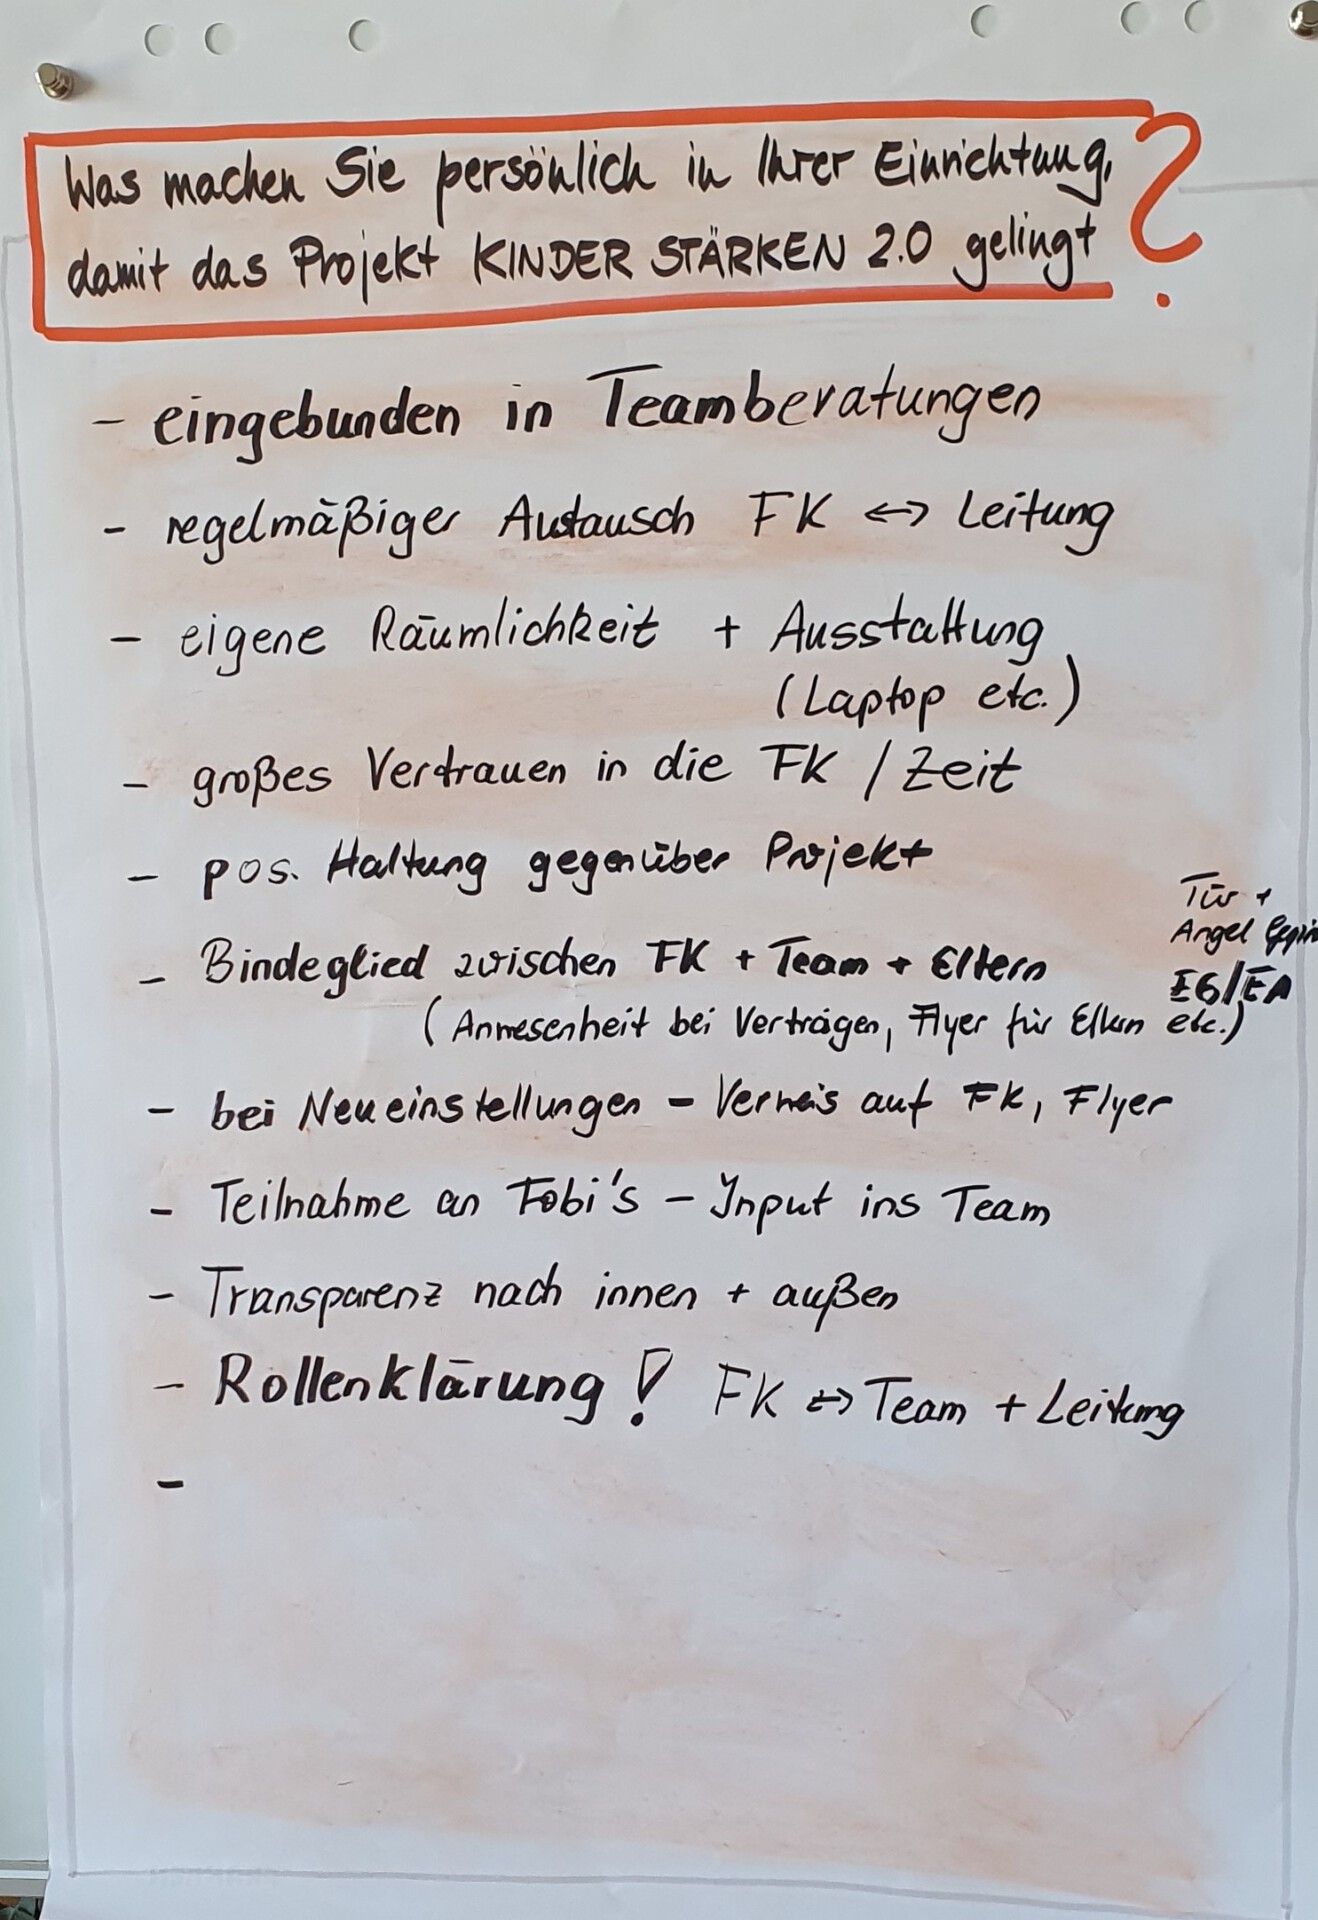 Was machen Sie persönlich in Ihrer Einrichtung,
damit das Projekt KINDER STÄRKEN 2.0 gelingt ?
- eingebunden in Teamberatungen
- regelmäßiger Austausch FK ↔ Leitung
- eigene Räumlichkeit + Ausstattung
(Laptop etc.)
- großes Vertrauen in die FK / Zeit
- pos. Haltung gegenüber Projekt
- Bindeglied zwischen FK + Team + Eltern
(Anwesenheit bei Verträgen, Flyer für Eltern etc.)
Tür +
Angel
EG/EA
- bei Neueinstellungen - Verweis auf FK, Flyer
- Teilnahme an Fobi's - Input ins Team
- Transparenz nach innen + außen
- Rollenklärung! FK ↔ Team + Leitung
-